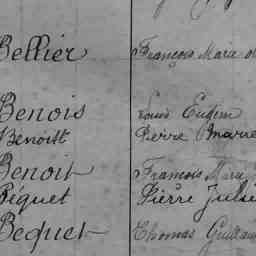 Bellier François Marie
Benois Louis Eugèn
Benoist Pierre Marie
Benoit François Mary
Béquet Pierre Julie
Bequet Thomas Guillau